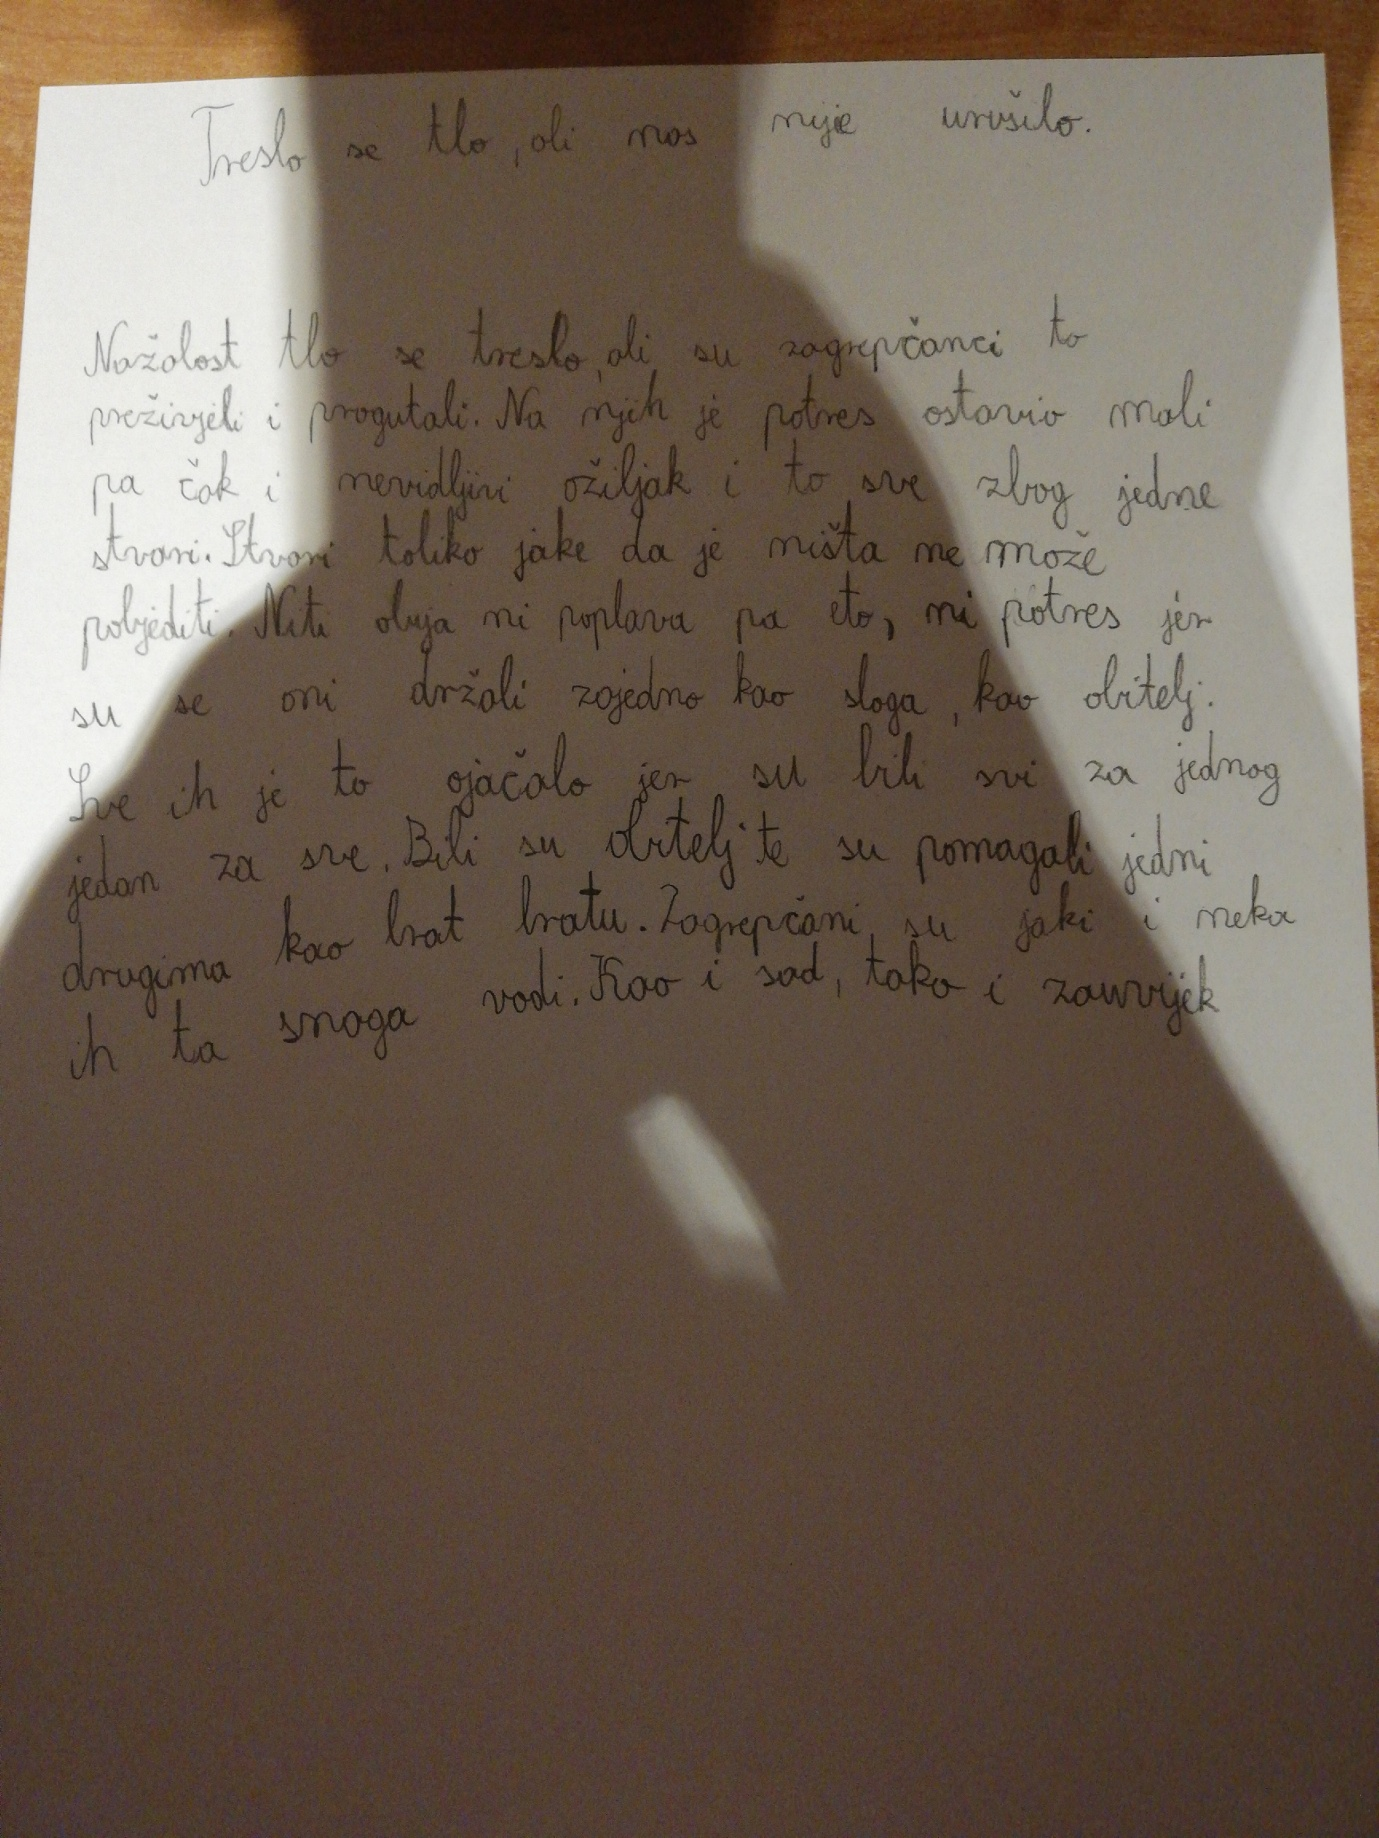 Treslo se tlo, ali nas nije urušilo.
Nažalost tlo se treslo, ali su zagrepčanci to
preživjeli i progutali. Na njih je potres ostavio mali
pa čak i nevidljivi ožiljak i to sve zbog jedne
stvari. Stvari toliko jake da je ništa ne može
pobjediti. Niti oluja ni poplava pa eto, ni potres jer
su se oni držali zajedno kao sloga, kao obitelj.
Sve ih je to ojačalo jer su bili svi za jednog
jedan za sve. Bili su obitelj te su pomagali jedni
drugima kao brat bratu. Zagrepčani su jaki i neka
ih ta snaga vodi. Kao i sad, tako i zauvijek